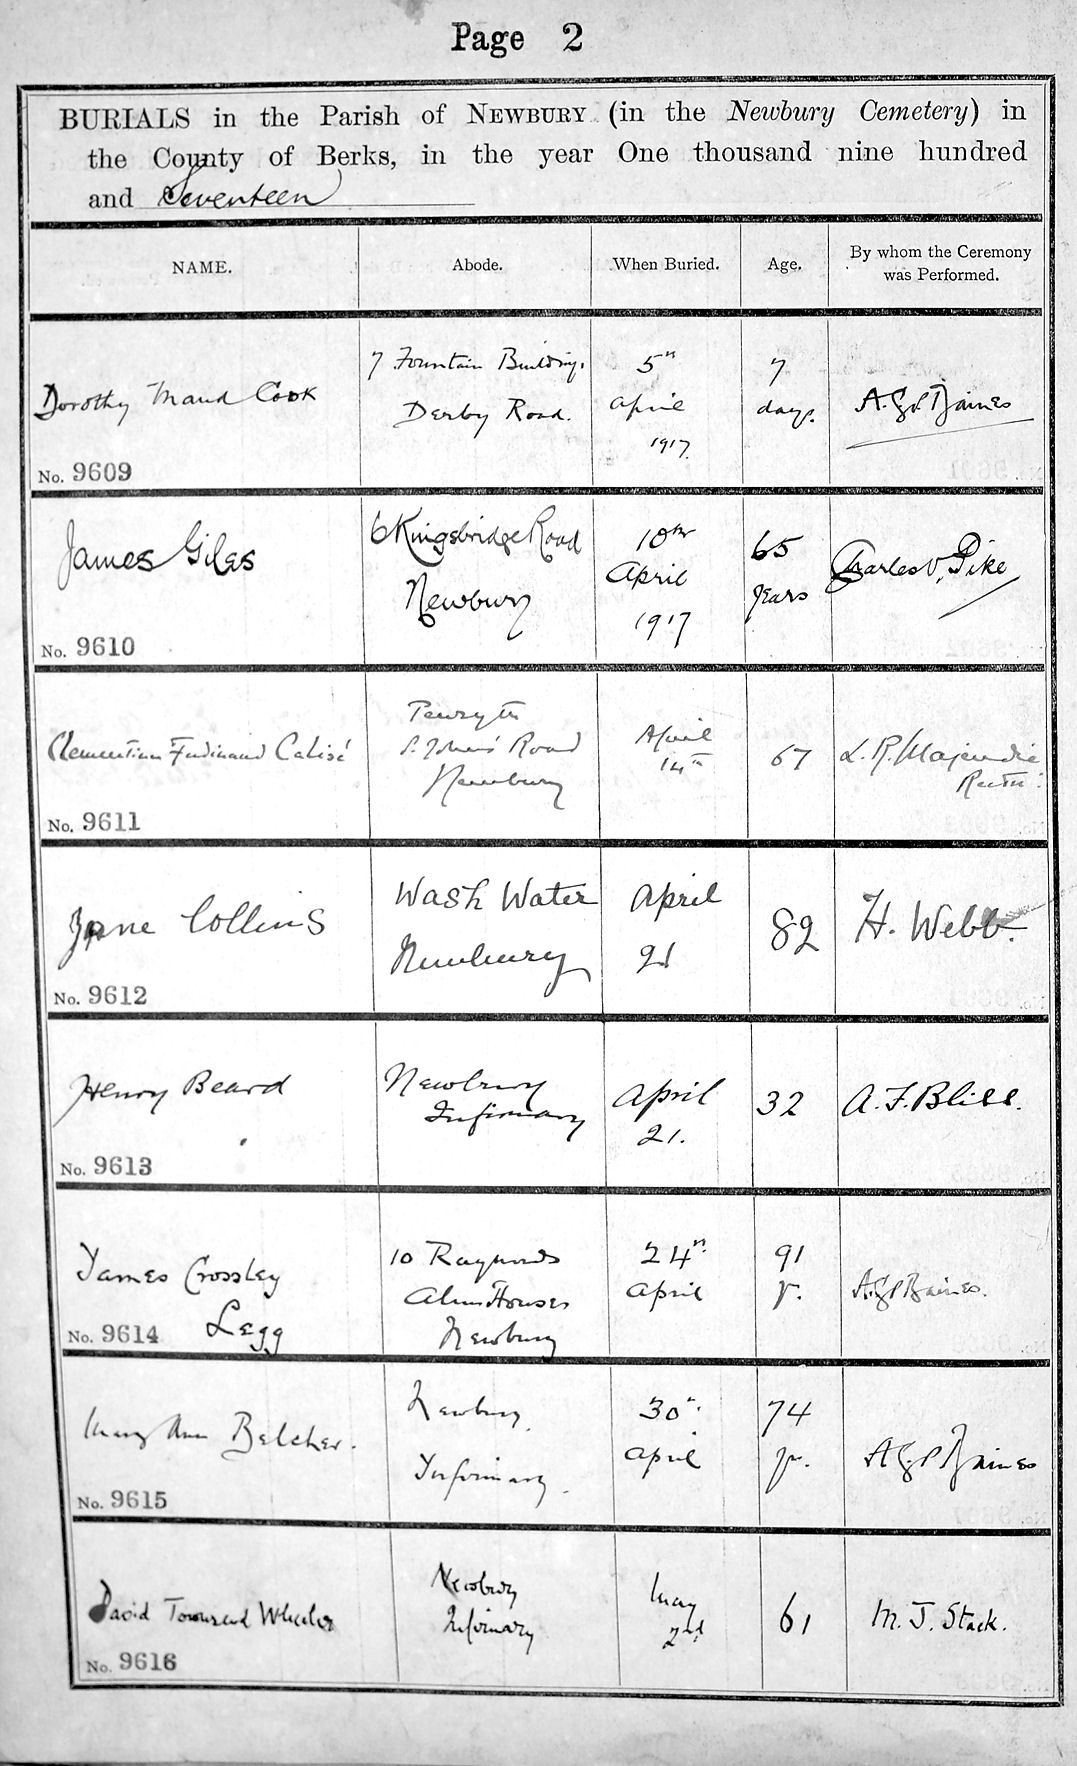 Page 2
BURIALS in the Parish of NEWBURY (in the Newbury Cemetery) in
the County of Berks, in the year One thousand nine hundred
and Seventeen
NAME. Abode. When Buried. Age. By whom the Ceremony
was Performed.
Dorothy Maud Cook
No. 9609
7 Fountain Buildings
Derby Road.
5th
April
1917.
7
days.
A.G.P. Baines
James Giles
No. 9610
6 Kingsbridge Road
Newbury
10th
April
1917
65
years
Charles V. Pike
Ferdinand
No. 9611
St. Johns' Road
Newbury
April
14th
67
L. R. Majendie
Rector
Jane Collins
No. 9612
Wash Water
Newbury
April
21
82
H. Webb.
Henry Beard
No. 9613
Newbury
Infirmary
April
21.
32
A. F. Bliss.
James Crossley
Legg
No. 9614
10 Raymonds
Alms Houses
Newbury
24th
April
91
y.
A.G.P. Baines.
Mary Ann Belcher.
No. 9615
Newbury.
Infirmary.
30th
April
74
yr.
A.G.P. Baines
David Townsend Wheeler
No. 9616
Newbury
Infirmary
May
2nd
61
M. J. Stack.